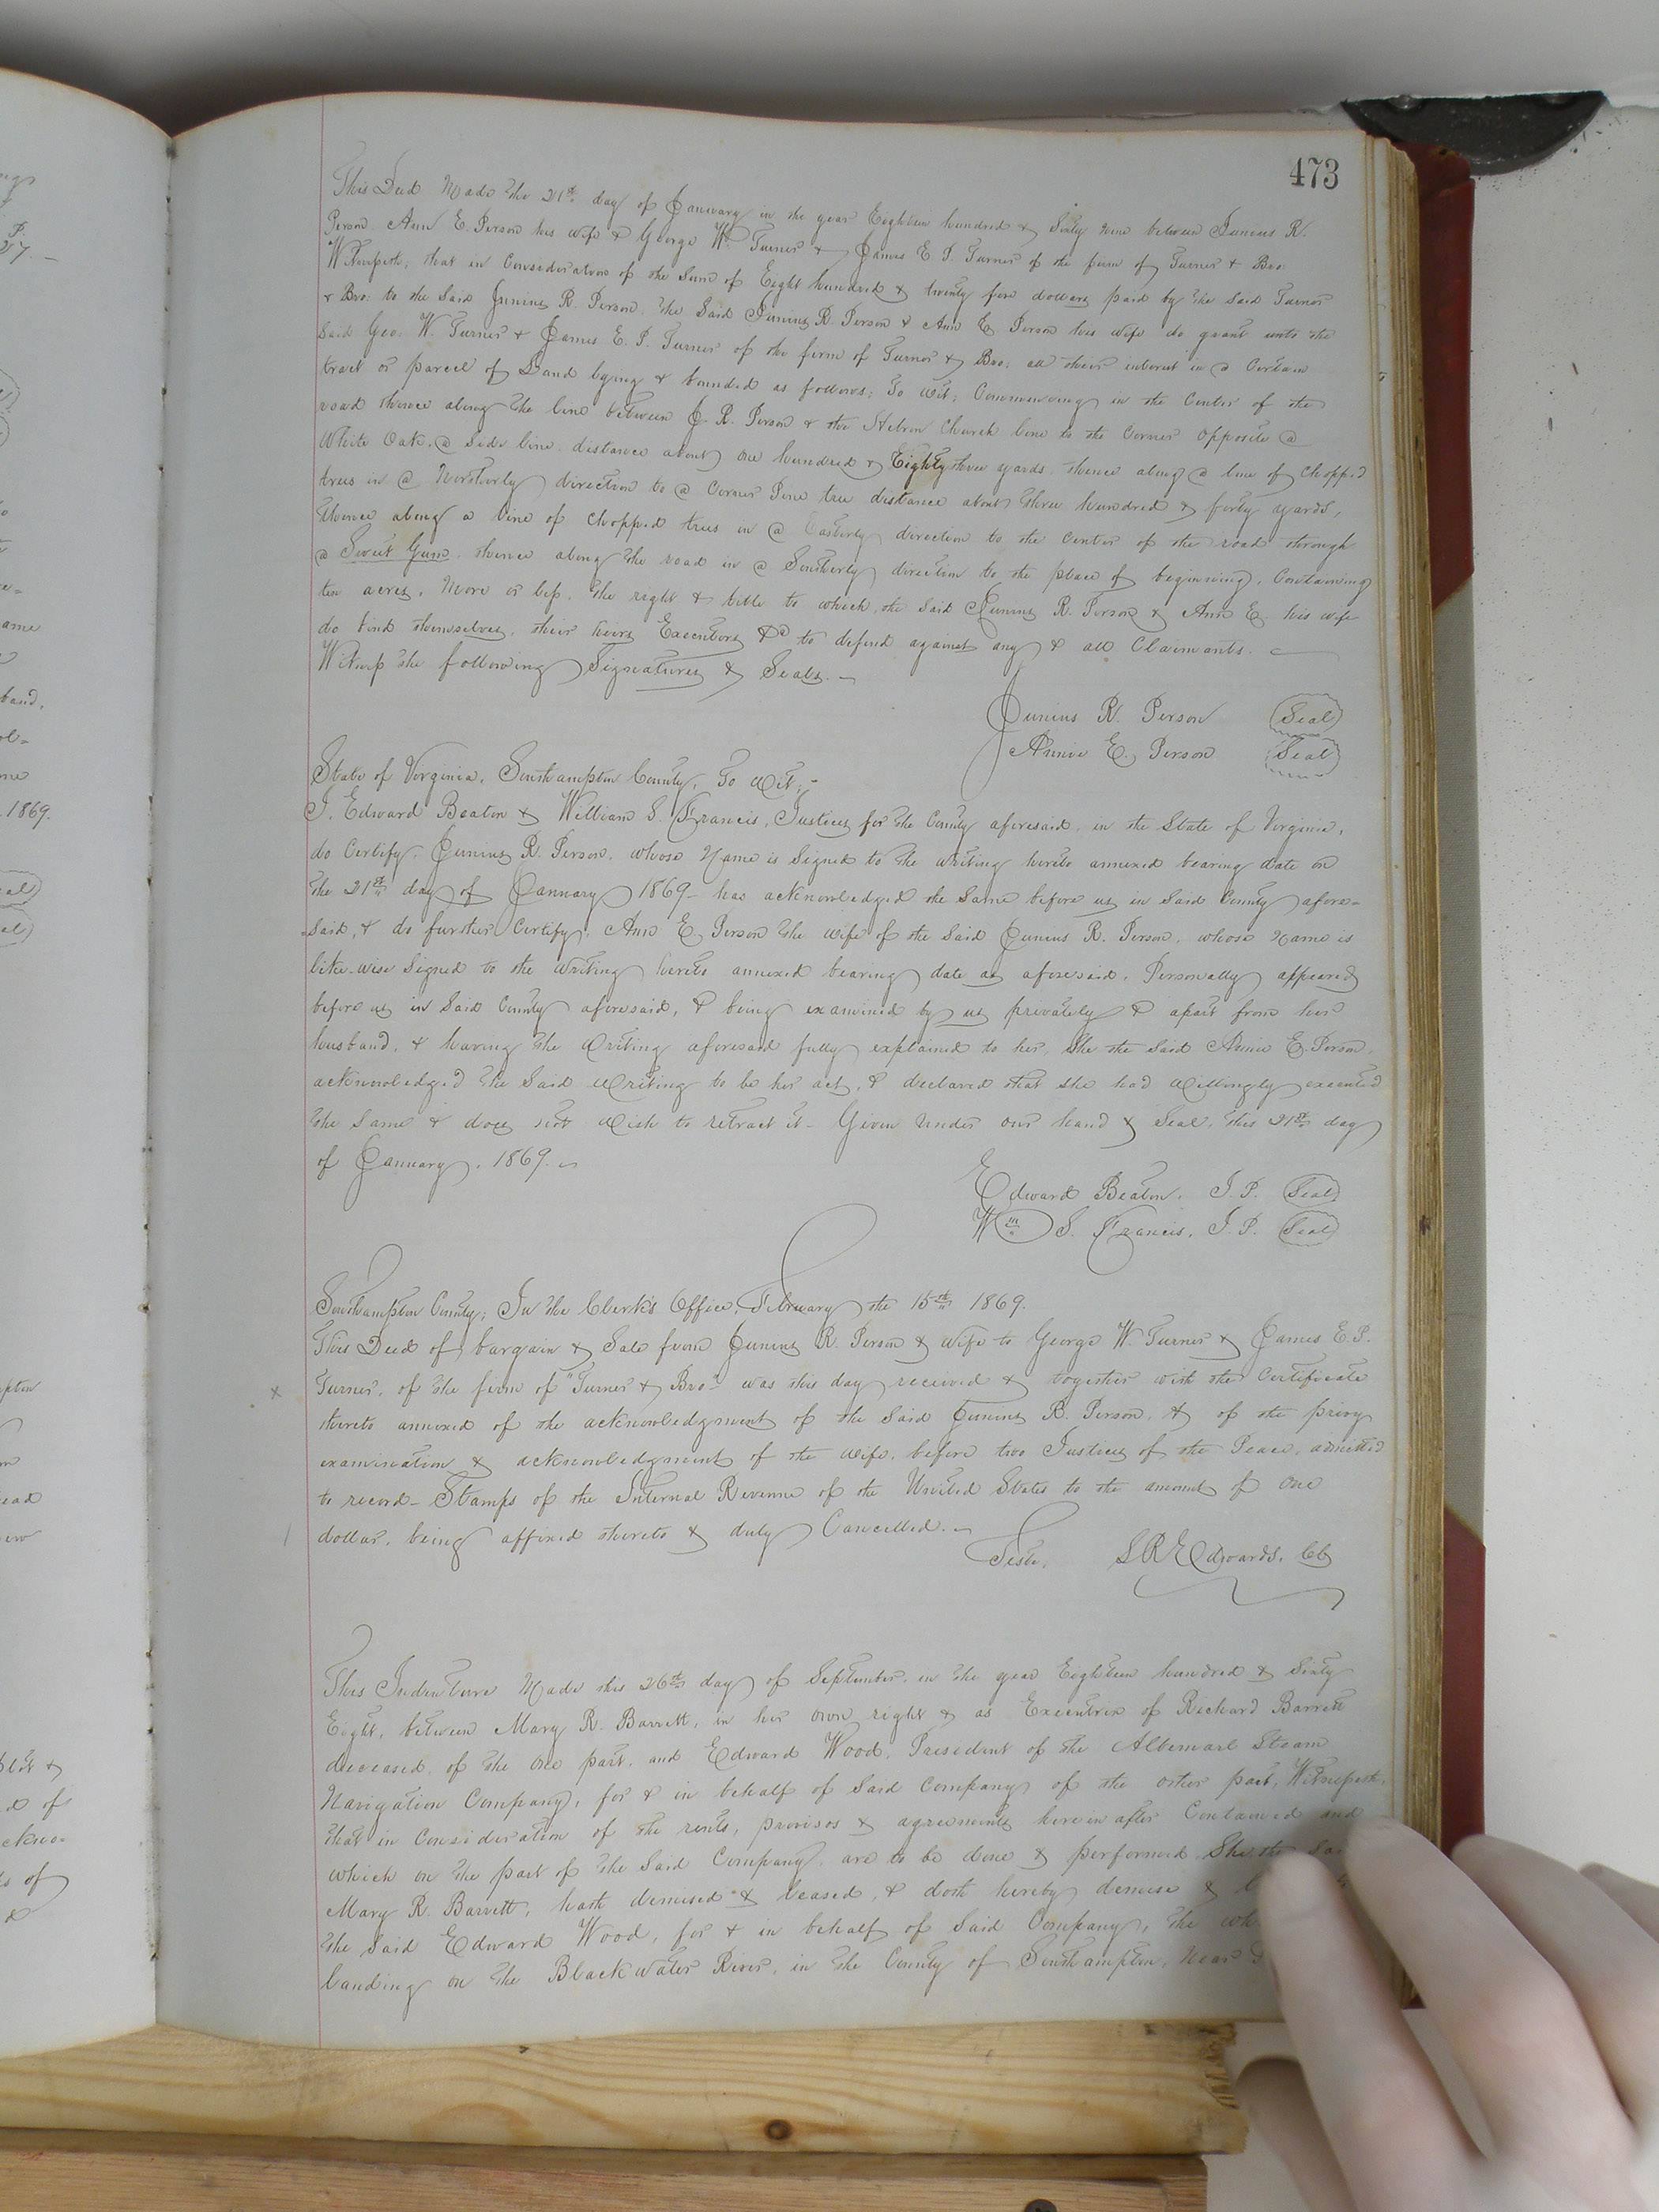 473
This Deed Made the 21st day of January in the year Eighteen hundred & Sixty nine between Junius R.
Person, Ann E. Person his wife & George W. Turner & James E. P. Turner of the firm of Turner & Bro.
Witnesseth, that in Consideration of the Sum of Eight hundred & twenty five dollars paid by the Said Turner
& Bro: to the Said Junius R. Person, the Said Junius R. Person & Ann E. Person his wife do grant unto the
Said Geo. W. Turner & James E. P. Turner of the firm of Turner & Bro. all their interest in a Certain
tract or parcel of Land lying & bounded as follows; To wit; Commencing in the Center of the
road thence along the line between J. R. Person & the Hebron Church line to the Corner opposite a
White Oak, a Side line distance about one hundred & Eighty three yards, thence along a line of chopped
trees in a Northerly direction to a Corner Pine tree distance about three hundred & forty yards,
thence along a line of chopped trees in a Easterly direction to the Center of the road through
a Sweet Gum, thence along the road in a Southerly direction to the place of beginning, Containing
ten acres, More or less, the right & title to which, the Said Junius R. Person & Ann E. his wife
do bind themselves, their heirs Executors &c to defend against any & all Claimants.
Witness the following Signatures & Seals.
Junius R. Person Seal
Annie E. Person Seal
State of Virginia, Southampton County, To wit:
I, Edward Beaton & William S. Francis, Justices for the County aforesaid, in the State of Virginia,
do Certify, Junius R. Person, whose Name is Signed to the writing hereto annexed bearing date on
the 21st day of January 1869 - has acknowledged the Same before us in Said County afore=
said, & do further Certify, Ann E. Person the wife of the Said Junius R. Person, whose Name is
like-wise Signed to the writing hereto annexed bearing date as aforesaid, Personally appeared
before us in Said County aforesaid, & being examined by us privately & apart from her
husband, & having the writing aforesaid fully explained to her, She the Said Annie E. Person,
acknowledged the Said writing to be her act, & declared that she had willingly executed
the Same & does not wish to retract it - Given under our hand & Seal, this 21st day
of January, 1869.
Edward Beaton, J. P. Seal
Wm S. Francis, J. P. Seal
Southampton County; In the Clerk's Office, February the 15th 1869.
This Deed of bargain & Sale from Junius R. Person & wife to George W. Turner & James E. P.
Turner, of the firm of "Turner & Bro" was this day received & together with the Certificate
thereto annexed of the acknowledgment of the Said Junius R. Person, & of the privy
examination & acknowledgment of the wife, before two Justices of the Peace, admitted
to record - Stamps of the Internal Revenue of the United States to the amount of one
dollar, being affixed thereto & duly Cancelled.
Teste, L R Edwards, Clk
This Indenture Made this 26th day of September, in the year Eighteen hundred & Sixty
Eight, between Mary R. Barrett, in her own right & as Executrix of Richard Barrett
deceased, of the one part, and Edward Wood, President of the Albemarl Steam
Navigation Company, for & in behalf of Said Company of the other part, Witnesseth,
that in Consideration of the rents, provisos & agreements herein after Contained and
which on the part of the Said Company, are to be done & performed She the Sai
Mary R. Barrett, hath demised & leased, & doth hereby demise &
the Said Edward Wood, for & in behalf of Said Company, the wh
landing on the Blackwater River, in the County of Southampton, Near